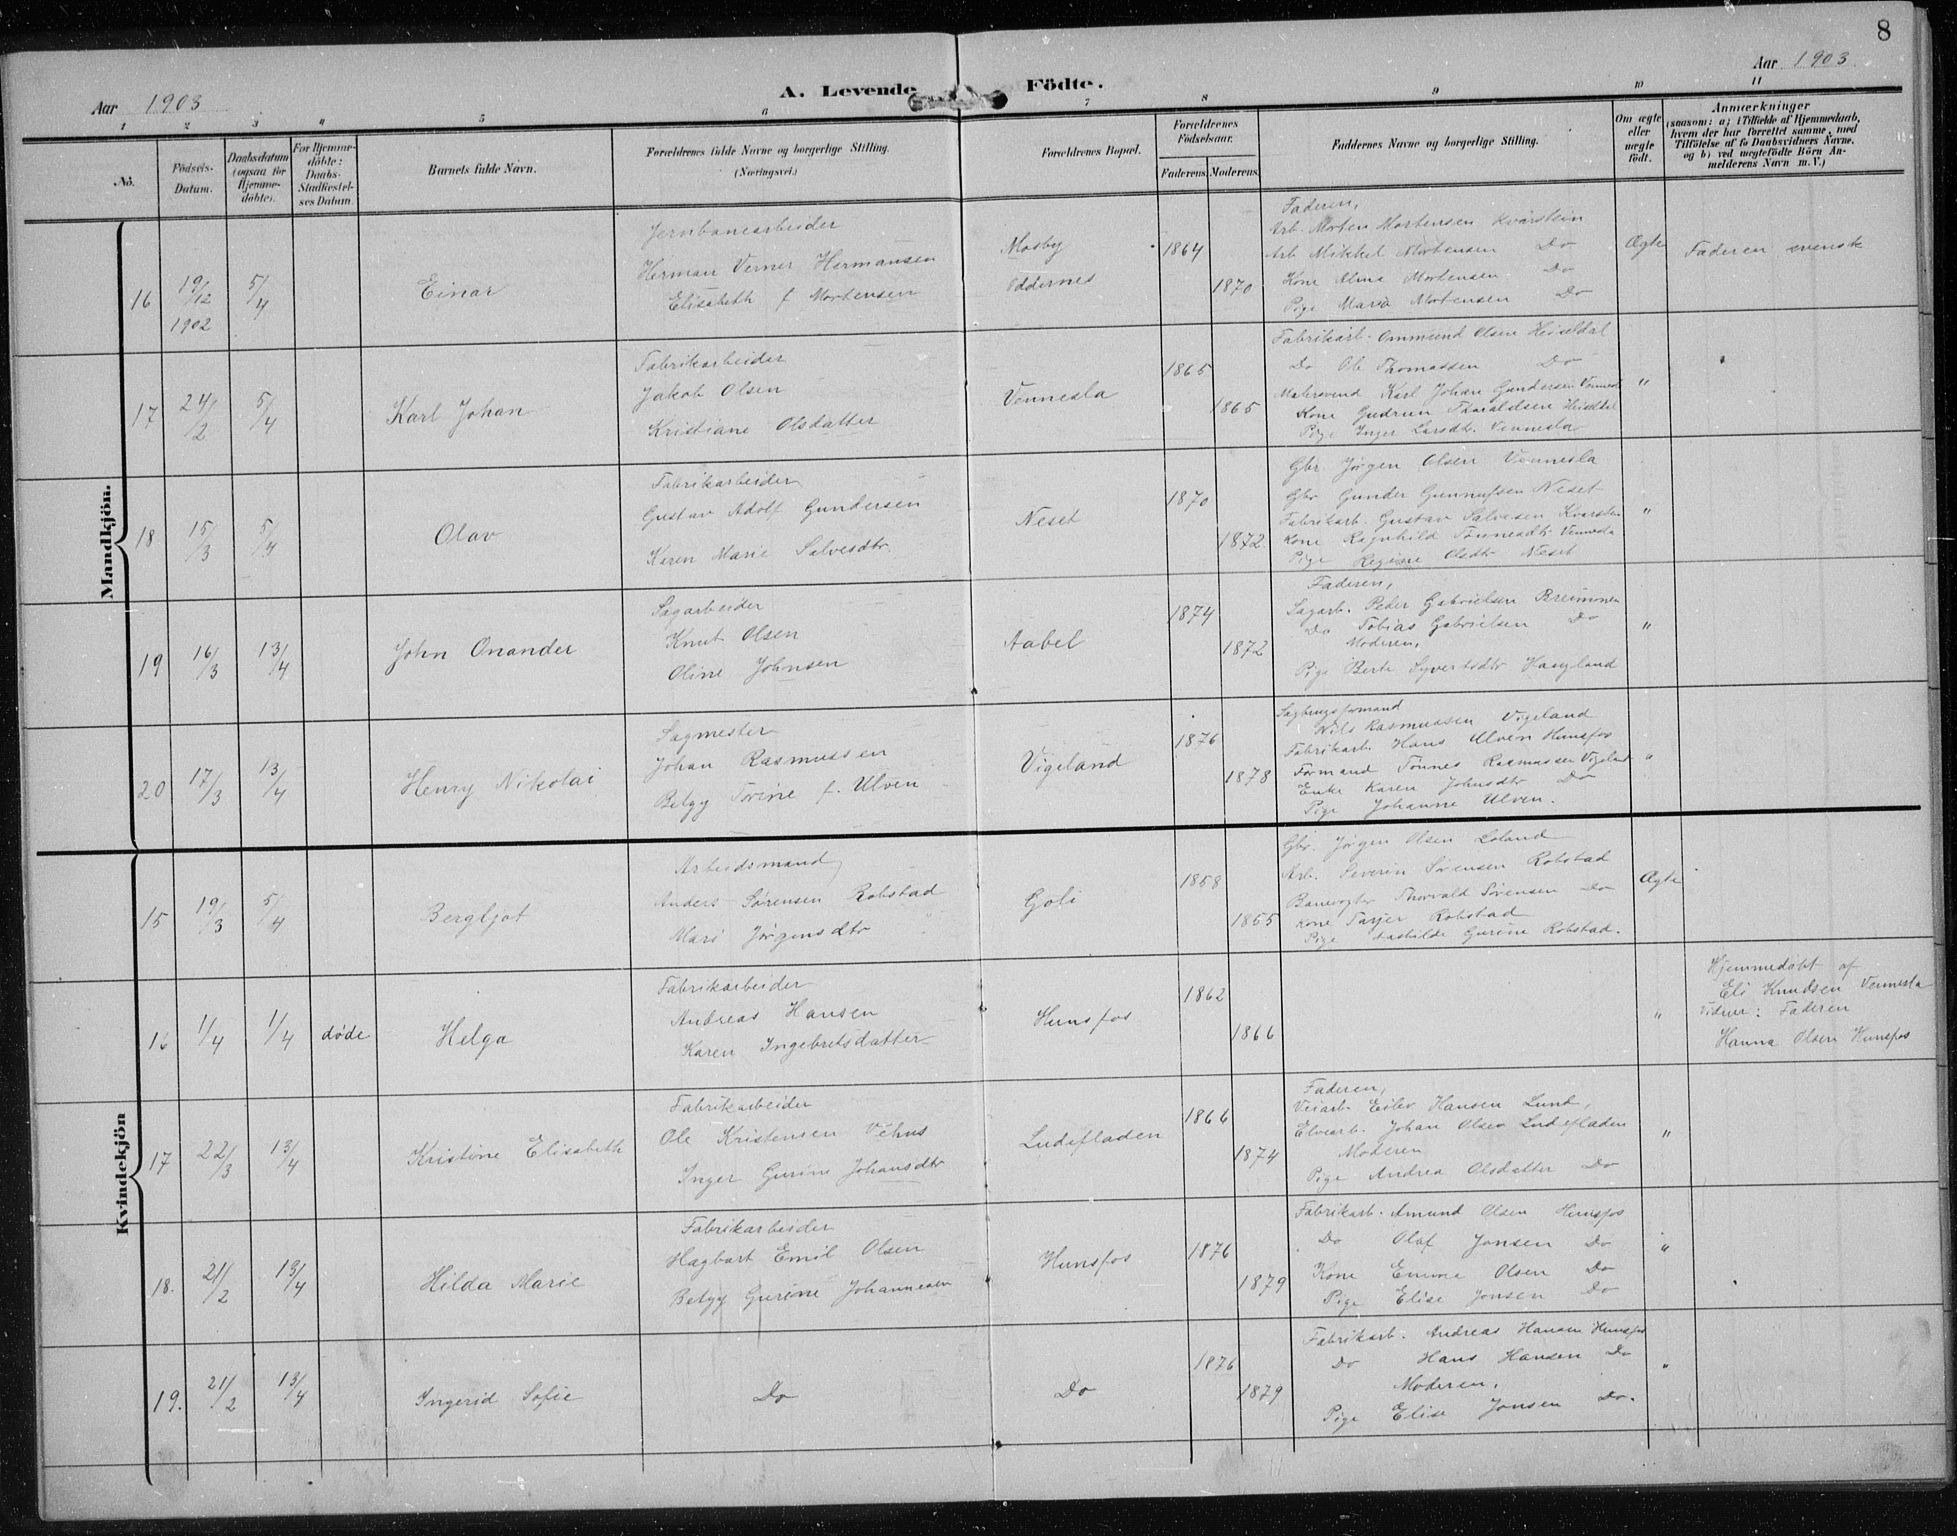 8
Aar 1903
A. Levende Födte.
Aar 1903
1 2 3 4 5 6 7 8 9 10 11
No.
Födsels-Datum.
Daabsdatum (ogsaa for Hjemme-döbte).
For Hjemme-döbte: Daabs-Stadfæstel-ses Datum.
Barnets fulde Navn.
Forældrenes fulde Navne og borgerlige Stilling. (Næringsvei.)
Forældrenes Bopæl.
Forældrenes Födselsaar.
Faderens. Moderens.
Faddernes Navne og borgerlige Stilling.
Om ægte eller uægte födt.
Anmærkninger
(saasom: a; i Tilfælde af Hjemmedaab, hvem der har forrettet samme, med Tilföielse af to Daabsvidners Navne, og b) ved uægtefödte Börn An-melderens Navn m. V.)
Mandkjön.
16 19/12 1902 5/4 Einar
Jernbanearbeider
Herman Verner Hermansen
Elisabeth f. Mortensen
Mosby
Oddernes
1864
1870
Faderen,
Arb. Morten Mortensen Kvarstein
Arb. Mikkel Mortensen Do
Kone Alma Mortensen Do
Pige Maria Mortensen Do
Ægte
Faderen svensk
17 24/2 5/4 Karl Johan
Fabrikarbeider
Jakob Olsen
Kristiane Olsdatter
Vennesla
1865
1865
Fabrikarb. Ommund Olsen Heiseldal
Do Ole Thomassen Do
Karl Johan Gundersen Vennesla
Kone Gudrun Tharaldsen Heiseldal
Pige Inger Larsdt. Vennesla
"
18 15/3 5/4 Olav
Fabrikarbeider
Gustav Adolf Gundersen
Karen Marie Salvesdtr.
Neset
1870
1872
Gbr. Jørgen Olsen Vennesla
Gbr Gunder Gunnufsen Neset
Fabrikarb. Gustav Salvesen Kvarsten
Kone Ragnhild Tønnesdtr Vennesla
Pige Regine Olsdtr Neset
"
19 16/3 13/4 John Onander
Sagarbeider
Knut Olsen
Oline Johnsen
Aabel
1874
1872
Faderen,
Sagarb. Peder Gabrielsen Breimnen
Do Tobias Gabrielsen Do
Moderen,
Pige Berte Syvertsdtr Haugland
"
20 17/3 13/4 Henry Nikolai
Sagmester
Johan Rasmussen
Betzy Torine f. Ulven
Vigeland
1876
1878
Sagbrugsformand
Nils Rasmussen Vigeland
Fabrikarb. Hans Ulven Hunsfos
Formand Tönnes Rasmussen Vigeland
Enke Karen Johnsdtr Do
Pige Johanne Ulven.
"
Kvindekjön
15 19/3 5/4 Bergljot
Arbeidsmand
Anders Sörensen Robstad
Mari Jørgensdtr "
Goli
1858
1865
Gbr. Jørgen Olsen Loland
Arb. Severin Sørensen Robstad
Banevogter Thorvald Sørensen Do
Kone Tarjer Robstad
Pige Gurine Robstad.
Ægte
16 1/4 1/4 døde Helga
Fabrikarbeider
Andreas Hansen
Karen Ingebretsdatter
Hunsfos
1862
1866
"
Hjemmedøbt af
Eli Knudsen Vennesla
Vidner: Faderen
Hanna Olsen Hunsfos
17 22/3 13/4 Kristine Elisabeth
Fabrikarbeider
Ole Kristensen Vehus
Inger Gurine Johansdtr
Ludefladen
1866
1874
Faderen,
Veiarb. Eilev Hansen Lund,
Elvearb. Johan Olsen Ludefladen
Moderen
Pige Andrea Olsdatter Do
"
18. 21/2 13/4 Hilda Marie
Fabrikarbeider
Hagbart Emil Olsen
Betzy Gurine Johannesen
Hunsfos
1876
1879
Fabrikarb. Amund Olsen Hunsfos
Do Olaf Jonsen Do
Kone Emma Olsen Do
Pige Elise Jonsen Do
"
19. 21/2 13/4 Ingerid Sofie
Do
Do
1876
1879
Fabrikarb. Andreas Hansen Hunsfos
Do Hans Hansen Do
Moderen,
Pige Elise Jonsen Do.
"